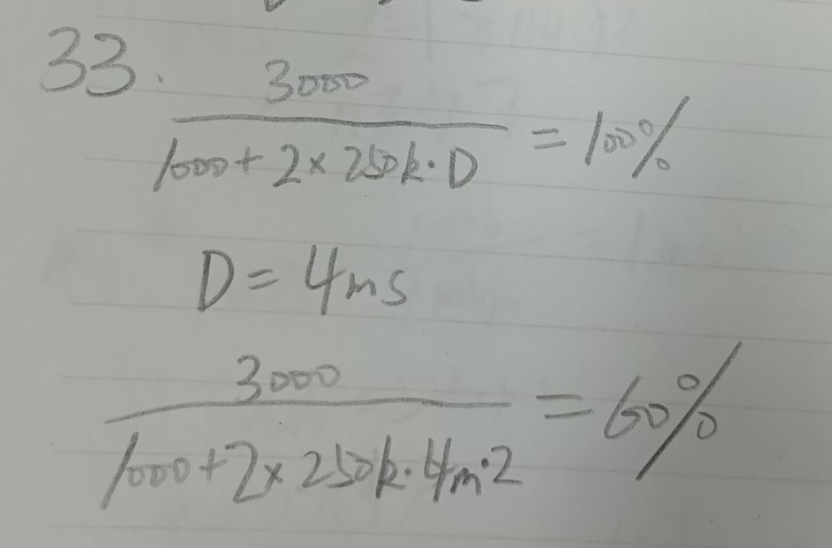 33. 3000 / 1000+2×250k·D = 100%
D = 4ms
3000 / 1000+2×250k·4m·2 = 60%